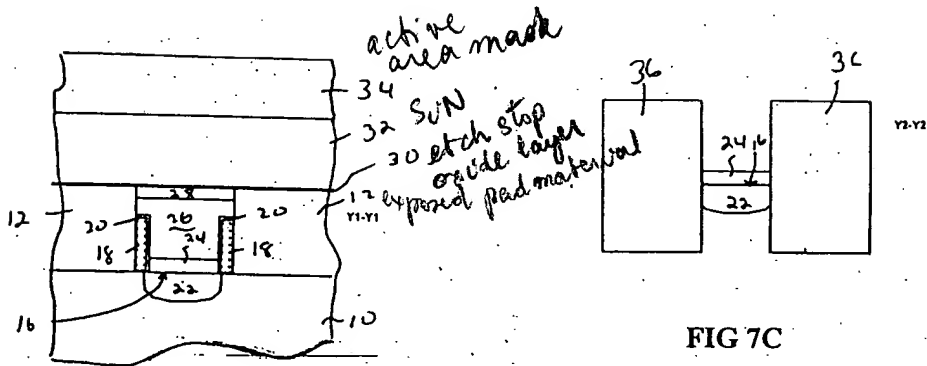 active
area mask
34
32 SiN
30 etch stop
oxide layer
12 exposed pad material
Y1-Y1
12
28
20
26
20
24
18
18
22
16
10
36
36
Y2-Y2
24
16
22
FIG 7C